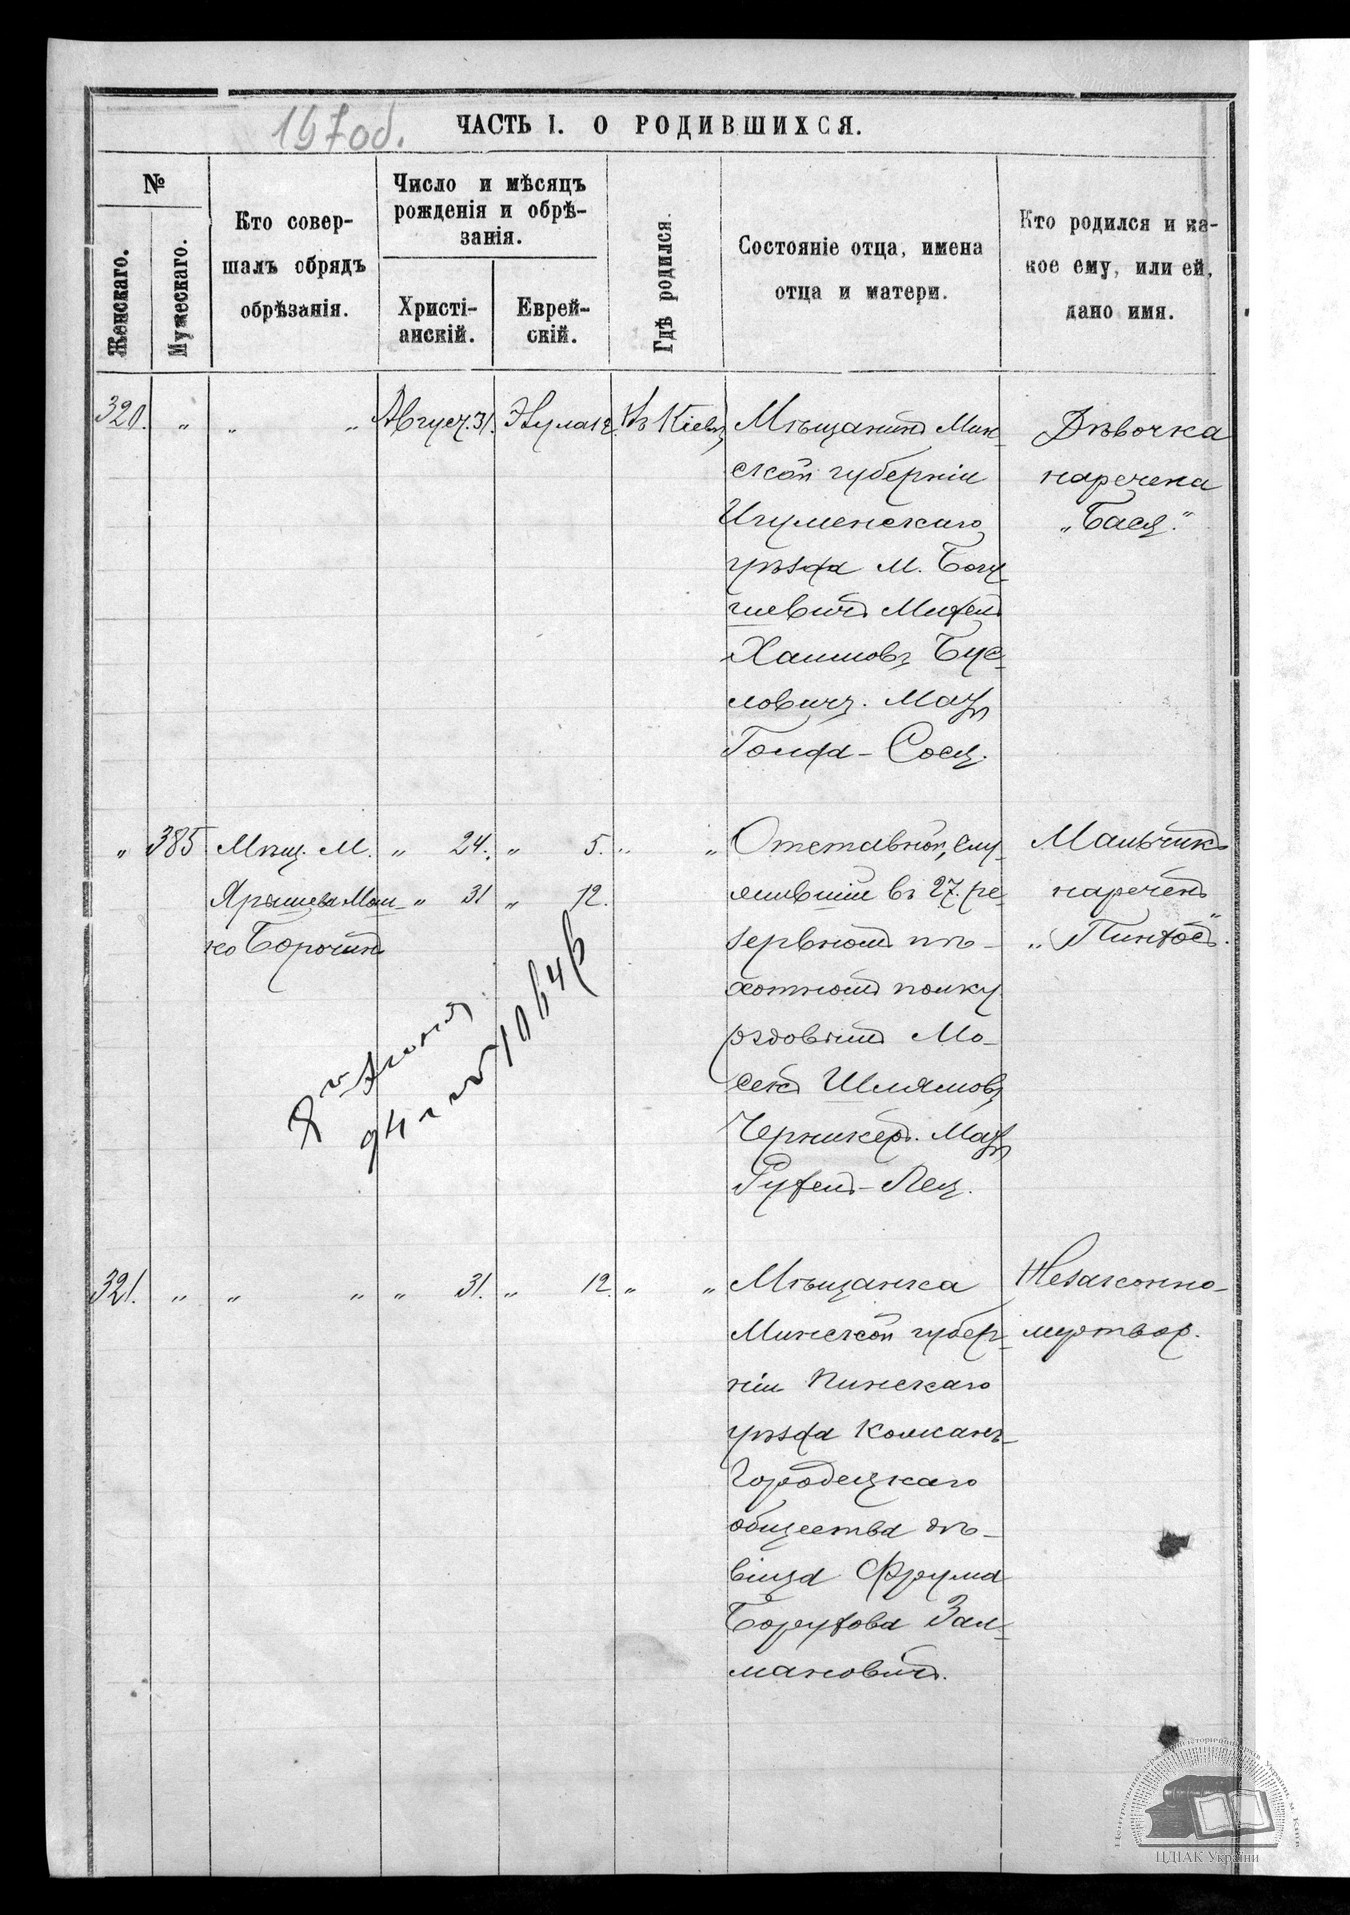 197 об.
ЧАСТЬ I. О РОДИВШИХСЯ.
№
Женскаго.
Мужескаго.
Кто совер-
шалъ обрядъ
обрѣзанія.
Число и мѣсяцъ
рожденія и обрѣ-
занія.
Христі-
анскій.
Еврей-
скій.
Гдѣ родился.
Состояніе отца, имена
отца и матери.
Кто родился и ка-
кое ему, или ей,
дано имя.
320. " " " Август. 31. Элула 12. Въ Кіевѣ
Мѣщанинъ Мин-
ской губерніи
Игуменскаго
уѣзда м. Богу-
шевичъ Михель
Хаимовъ Бус-
ловичъ. Мать
Голда - Сося.
Дѣвочка
наречена
„Бася."
" 385 Мѣщ. М. " 24. " 5. " "
Ярышева Мош- " 31 " 12.
ко Борочинъ
Отставной, слу-
жившій въ 27. ре-
зервномъ пѣ-
хотномъ полку
рядовымъ Мо-
секъ Шлямовъ
Черникеръ. Мать
Рухель - Лея.
Мальчикъ
нареченъ
„Пинхосъ".
321. " " " " 31. " 12. " "
Мѣщанка
Минской губер-
ніи Пинскаго
уѣзда Кожанъ-
Городецкаго
общества дѣ-
віца Фрума
Борухова Зал-
мановичъ.
Незаконно-
мертвор.
ЦДІАК України